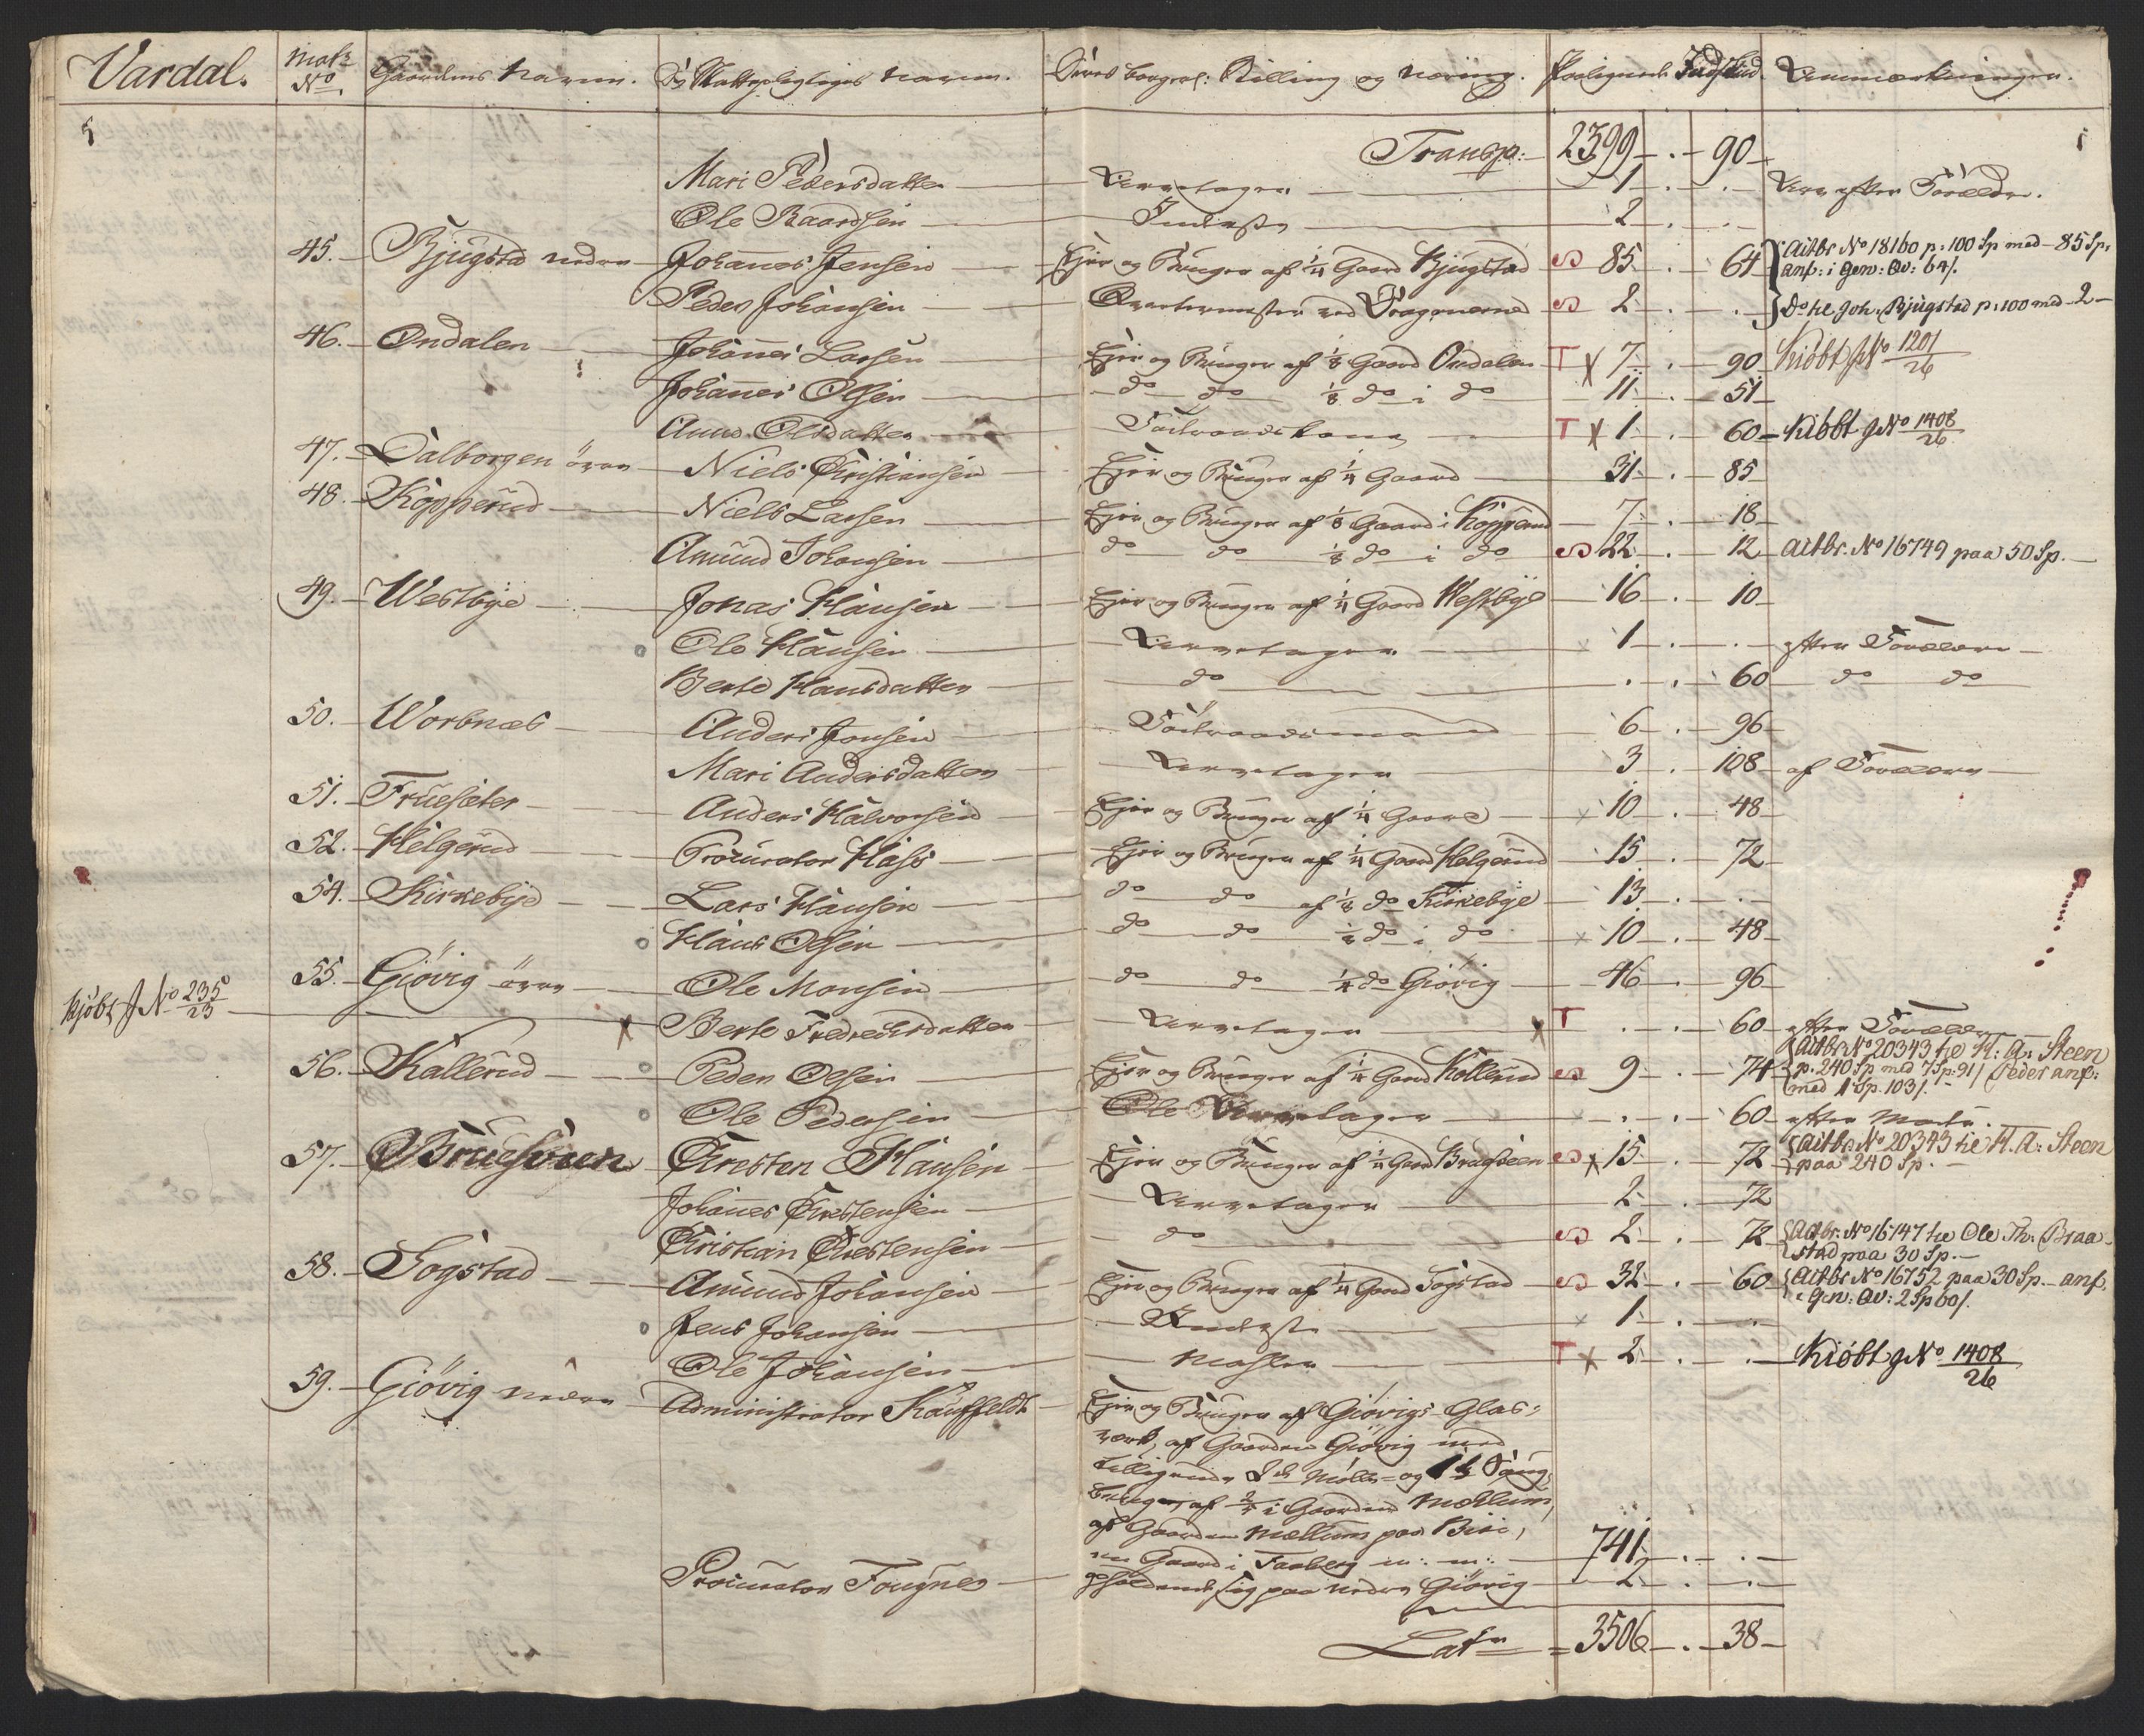 Vardal. Matr No Gaardens Navn. De Skattepligtiges Navn. Deres borgerl: Stilling og Næring. Paalignede Indskud Anmærkninger.
Transp: 2399 . 90
Mari Pedersdatter Arvetager 1 . . Arv efter Forældre.
Ole Baardsen Inderste 2 . .
45. Bjugstad nedre Johannes Jensen Ejer og Bruger af 1/4 Gaard Bjugstad S 85 . 64 Aitbr No 18160 p: 100 Sp med 85 Sp. anf: i Gen: Qv: 64/.
Peder Johansen Qvartermester ved Dragonerne S 2 . . Do til Joh. Bjugstad p: 100 med 2
46. Ondalen Johannes Larsen Ejer og Bruger af 1/8 Gaard Ondalen T X 7 . 90 Kiöbt J No 1201/26
Johannes Olsen do do 1/8 do i do 11 . 51
Anne Olsdatter Föderaadskone T X 1 . 60 Kiöbt J No 1408/26
47. Dalborgen övre Niels Christiansen Ejer og Bruger af 1/4 Gaard 31 . 85
48. Kopperud Niels Larsen Ejer og Bruger af 1/8 Gaard i Kopperud 7 . 18
Amund Johansen do do 1/8 do i do S 22 . 12 Aitbr. No 16749 paa 50 Sp.
49. Westbye Jonas Hansen Ejer og Bruger af 1/4 Gaard Westbye 16 . 10
o Ole Hansen Arvetager x 1 . . efter Forældre
Berte Hansdatter do . . 60 do do
50. Worbnæs Anders Jonsen Föderaadsmand 6 . 96
Mari Andersdatter Arvetager 3 . 108 af Forældre
51. Fruesæter Anders Halvorsen Ejer og Bruger af 1/4 Gaard x 10 . 48
52. Helgerud Procurator Hass Ejer og Bruger af 1/4 Gaard Helgerud 15 . 72
54. Kirkebye Lars Hansen do do af 1/8 do Kirkebye 13 . .
o Hans Olsen do do 1/8 do i do x 10 . 48
55. Giövig övre Ole Monsen do do 1/4 do Giövig 46 . 96
Kjöbt J No 235/23 X Berte Fredrechsdatter Arvetager X T . . 60 efter Forældre
56. Kallerud o Peder Olsen Ejer og Bruger af 1/4 Gaard Kollerud S 9 . 74 Aitbr No 20343 til H: A: Steen p. 240 Sp med 7 Sp: 91/ Peder anf: med 1 Sp. 103/.
o Ole Pedersen Arvetager x . . 60 efter Moder.
57. Bruesveen Chresten Hansen Ejer og Bruger af 1/4 Gaard Bruesveen S x 15 . 72 Aitbr. No 20343 til H. A: Steen paa 240 Sp.
Johannes Chrestensen Arvetager 2 . 72
Christian Chrestensen do S 2 . 72 Aitbr. No 16747 til Ole Th: Braastad paa 30 Sp.
58. Sogstad Amund Johansen Ejer og Bruger af 1/4 Gaard Sogstad S 32 . 60 Aitbr No 16752 paa 30 Sp. anf. i Gen: Qv: 2 Sp 60/.
o Jens Johansen Inderste x 1 . .
Ole Johansen Mahler T X 2 . . Kiöbt J No 1408/26
59. Giövig nedre Administrator Kauffeldt Ejer og Bruger af Giövigs Glas=
værk, af Gaarden Giövig med
tilliggende 2de Mölle= og 1 1/2 Saug
bruger, af 2/4 i Gaarden Mæhlum,
af Gaarden Mæhlum paa Biri,
en Gaard i Faaberg m: m: 741 . .
Procurator Fougner opholdende sig paa nedre Giövig 2 . .
Lats 3506 . 38